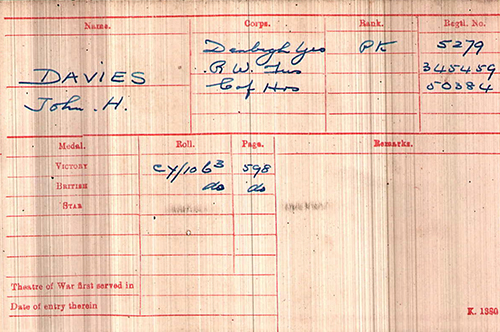 Name. Corps. Rank. Regtl. No.
Denbigh Yeo Pte 5279
DAVIES R. W. Fus 345459
John. H. C of Hrs 50384
Medal. Roll. Page. Remarks.
VICTORY CY/106 B 598
BRITISH do do
STAR
Theatre of War first served in
Date of entry therein
K. 1380